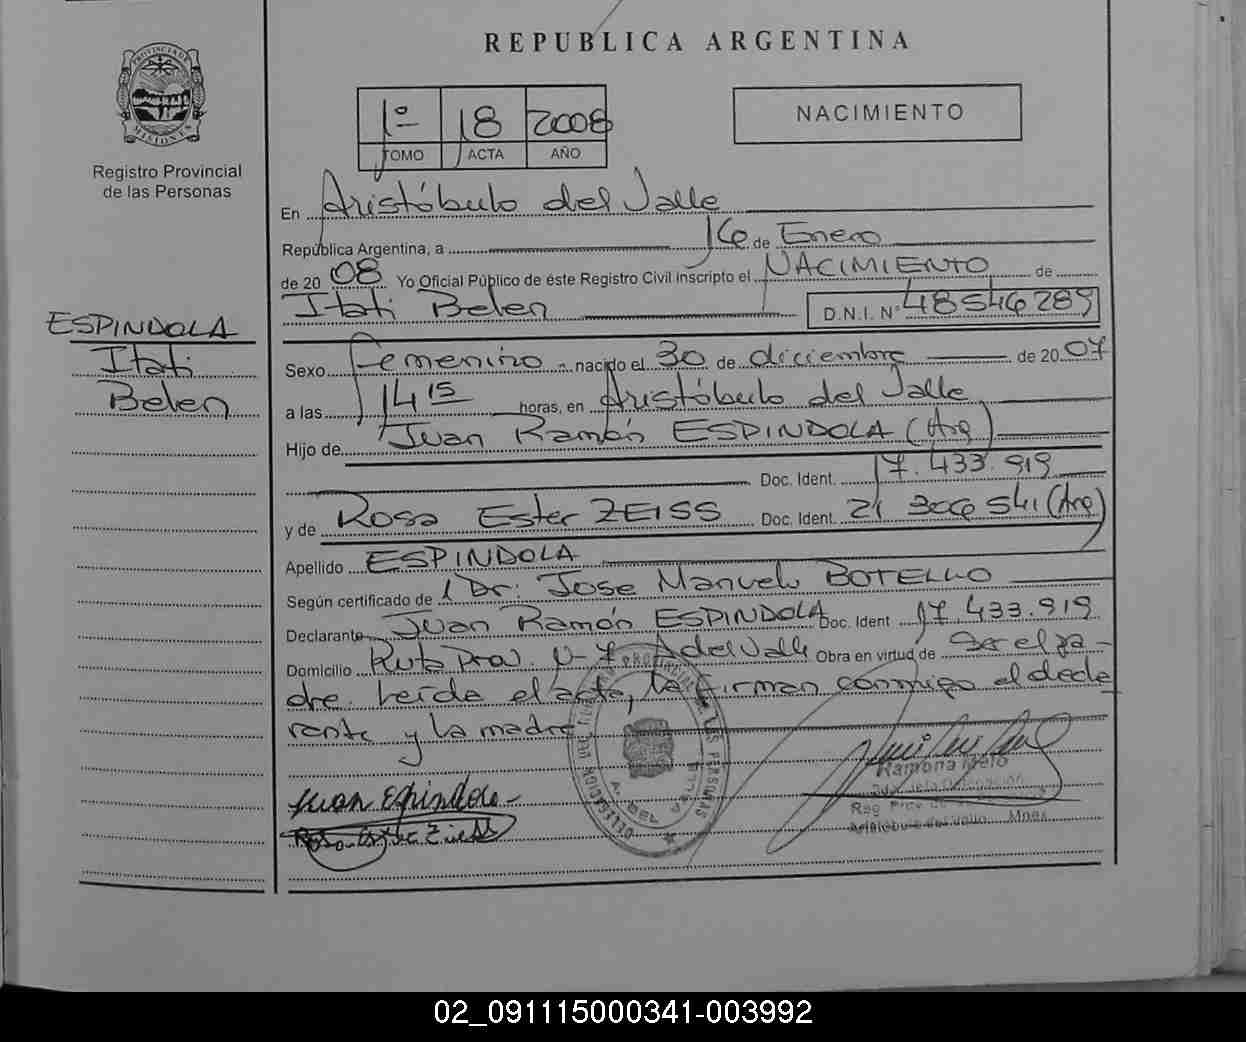 REPUBLICA ARGENTINA
PROVINCIA DE
MISIONES
Registro Provincial
de las Personas
1º 18 2008
TOMO ACTA AÑO
NACIMIENTO
En Aristóbulo del Valle
República Argentina, a 16 de Enero
de 2008 Yo Oficial Público de éste Registro Civil inscripto el NACIMIENTO de
Itati Belen D.N.I. Nº 48546289
ESPINDOLA
Itati
Belen
Sexo Femenino - nacido el 30 de diciembre de 2007
a las 14 15 horas, en Aristóbulo del Valle
Hijo de Juan Ramón ESPINDOLA (Arg)
Doc. Ident. 17.433.919
y de Rosa Ester ZEISS Doc. Ident. 21 306 541 (Arg)
Apellido ESPINDOLA
Según certificado de Dr: Jose Manuel BOTELLO
Declarante Juan Ramón ESPINDOLA Doc. Ident 17.433.919
Domicilio Ruta Prov. Nº 7 A del Valle Obra en virtud de Ser el pa-
dre. Leída el acta, la firman conmigo el decla
rante y la madre
Juan Espindola
Rosa Ester Zeiss
Ramona Melo
Reg Prov de
Aristóbulo del Valle Mnes
DELEGACION DEL
DE LAS PERSONAS
02_091115000341-003992